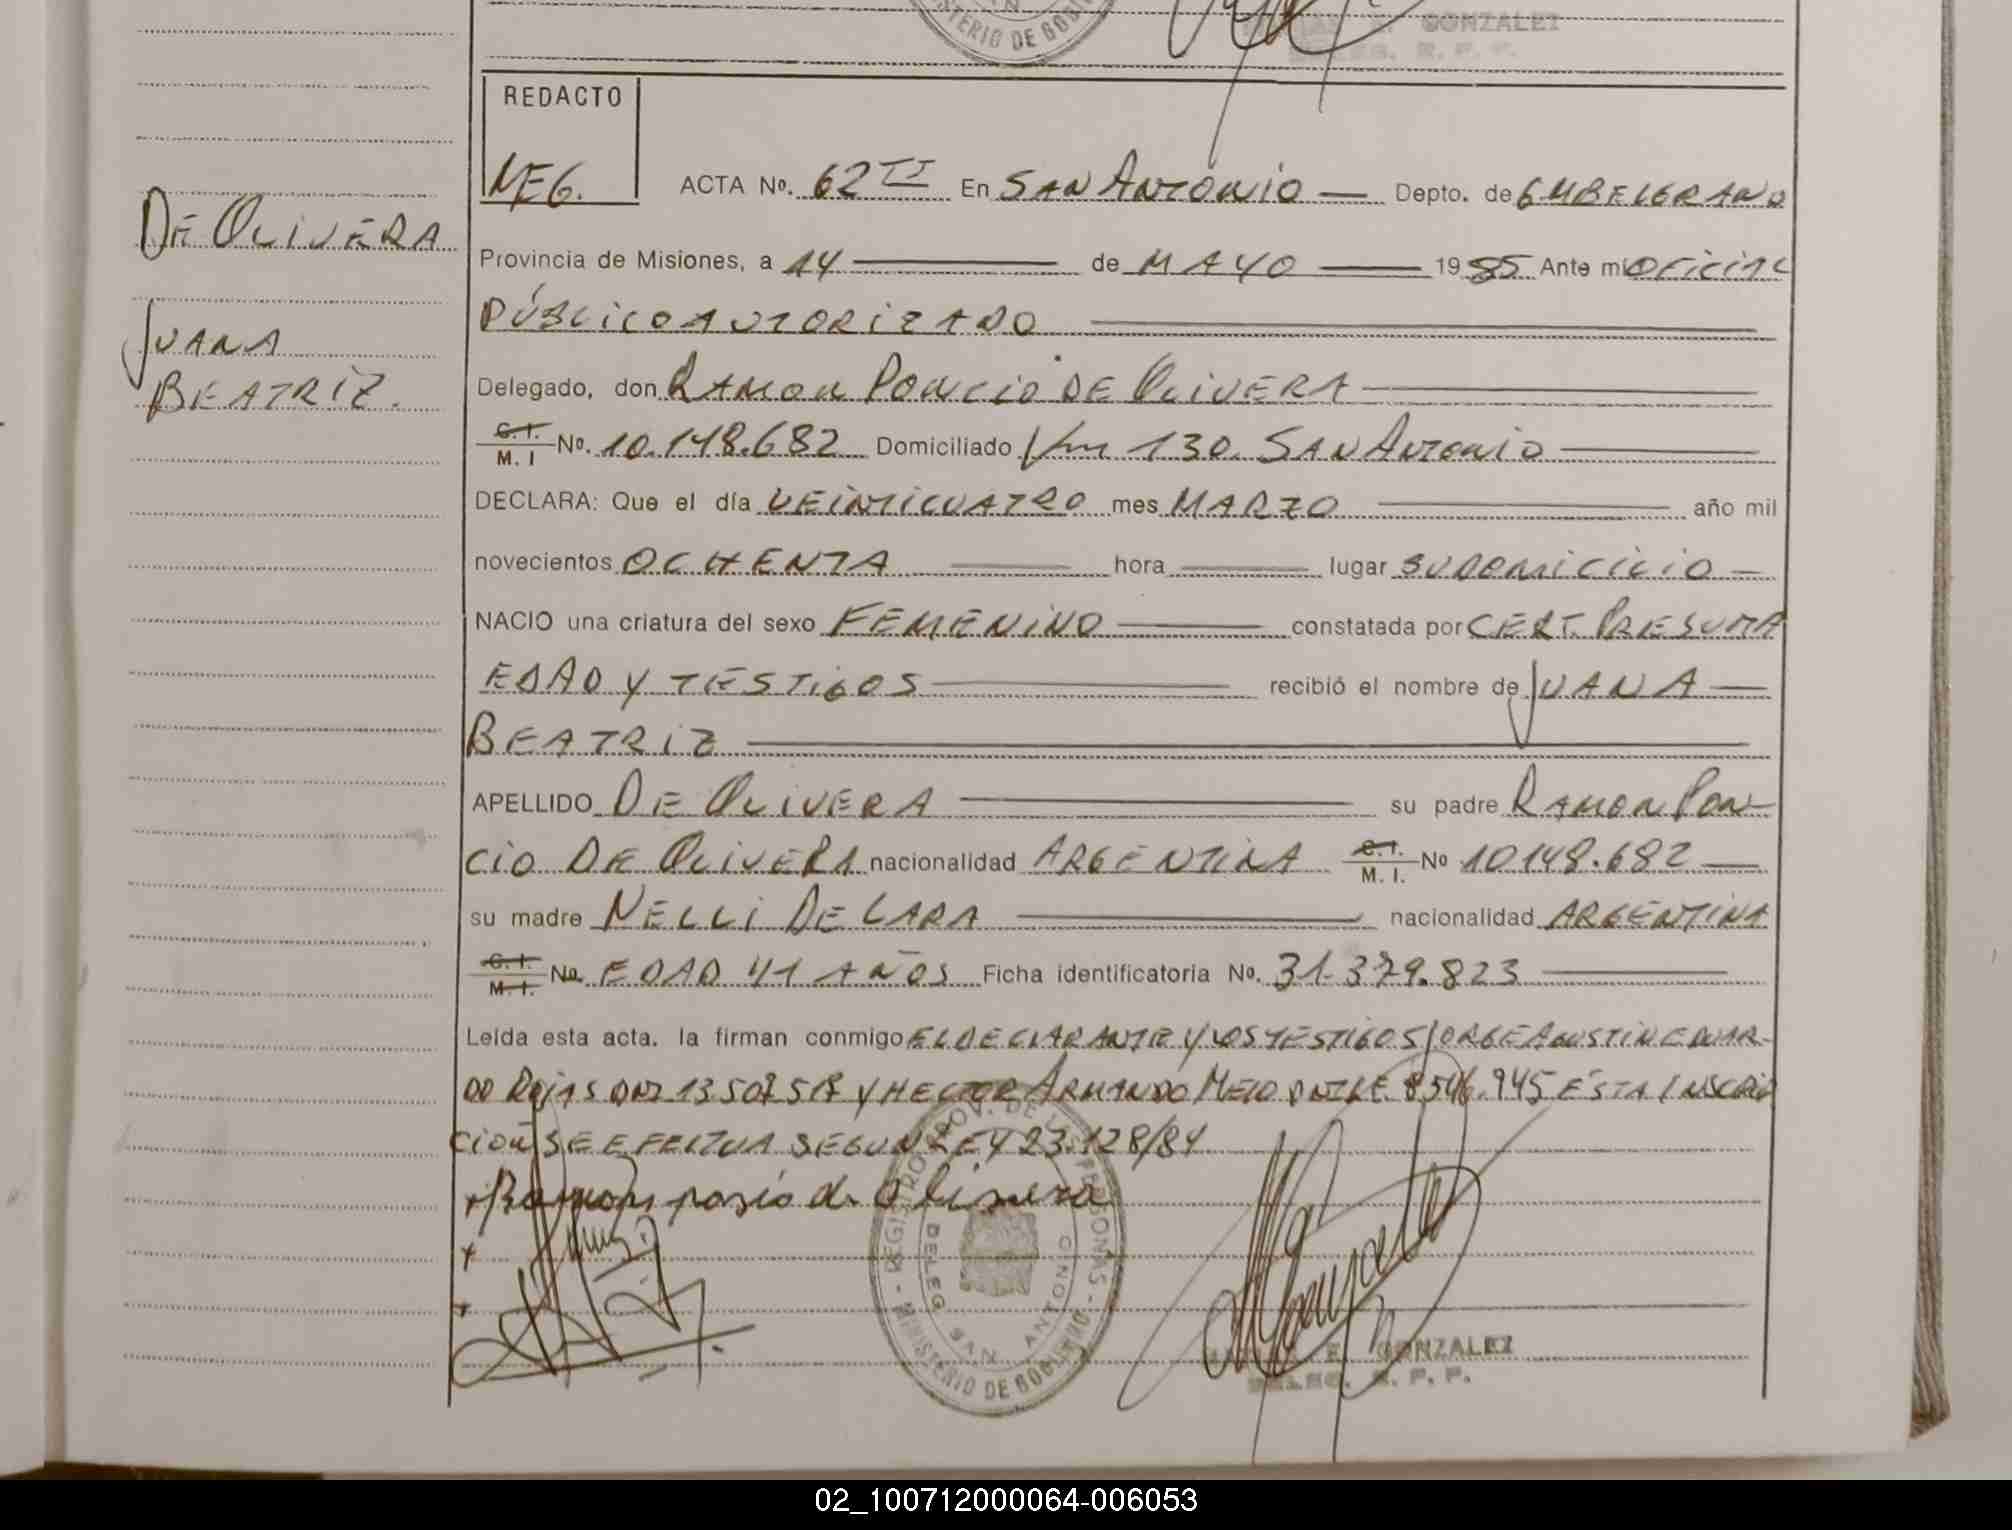 MINISTERIO DE GOBIERNO
GONZALEZ
R. P. P.
REDACTO
NEG.
DE OLIVERA
JUANA
BEATRIZ.
ACTA Nº. 62 TI En SAN ANTONIO — Depto. de GMBELGRANO
Provincia de Misiones, a 14 — de MAYO — 1985 Ante mi OFICIAL
PÚBLICO AUTORIZADO
Delegado, don RAMON PONCIO DE OLIVERA
C. I. M. I Nº. 10.148.682 Domiciliado Km 130. SAN ANTONIO
DECLARA: Que el día VEINTICUATRO mes MARZO — año mil
novecientos OCHENTA — hora — lugar SU DOMICILIO —
NACIO una criatura del sexo FEMENINO — constatada por CERT. PRESUNTA
EDAD Y TESTIGOS — recibió el nombre de JUANA —
BEATRIZ
APELLIDO DE OLIVERA — su padre RAMON PON-
CIO DE OLIVERA nacionalidad ARGENTINA C. I. M. I. Nº 10148.682 —
su madre NELLI DE LARA — nacionalidad ARGENTINA
C. I. M. I. Nº. EDAD 41 AÑOS Ficha identificatoria Nº. 31.379.823
Leída esta acta. la firman conmigo EL DECLARANTE Y LOS TESTIGOS JORGE AGUSTIN EDUAR-
DO ROJAS DNI 13507517 Y HECTOR ARMANDO MELO DNI LE. 8546.945 ESTA INSCRIP
CION SE EFECTUA SEGUN LEY 23.128/84
+ Ramon posio de Olivera
+
+
REGISTRO PROV. DE LAS PERSONAS - MINISTERIO DE GOBIERNO -
DELEG SAN ANTONIO
E. GONZALEZ
DELEG. R. P. P.
02_100712000064-006053